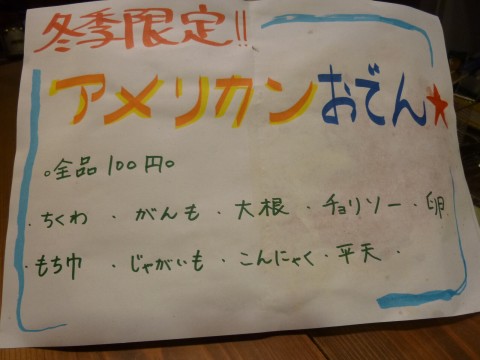 冬季限定!!
アメリカンおでん★
。全品100円。
・ちくわ・がんも・大根・チョリソー・卵
・もち巾・じゃがいも・こんにゃく・平天・